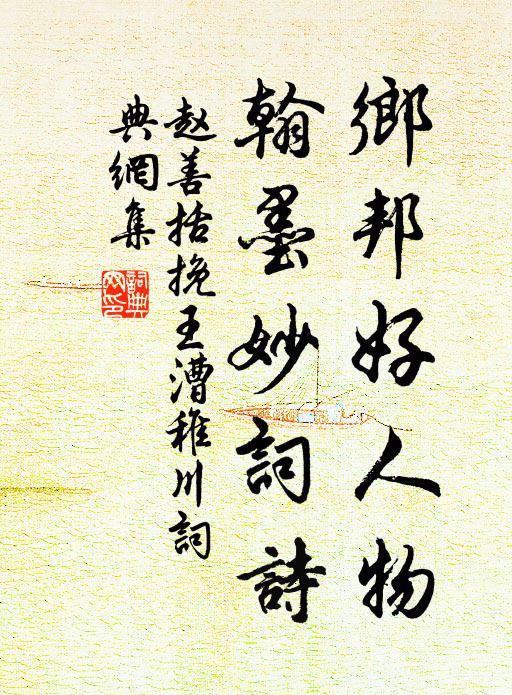 鄉邦好人物
翰墨妙詞詩
赵善括挽王漕稚川詞
典網集
詞典網印